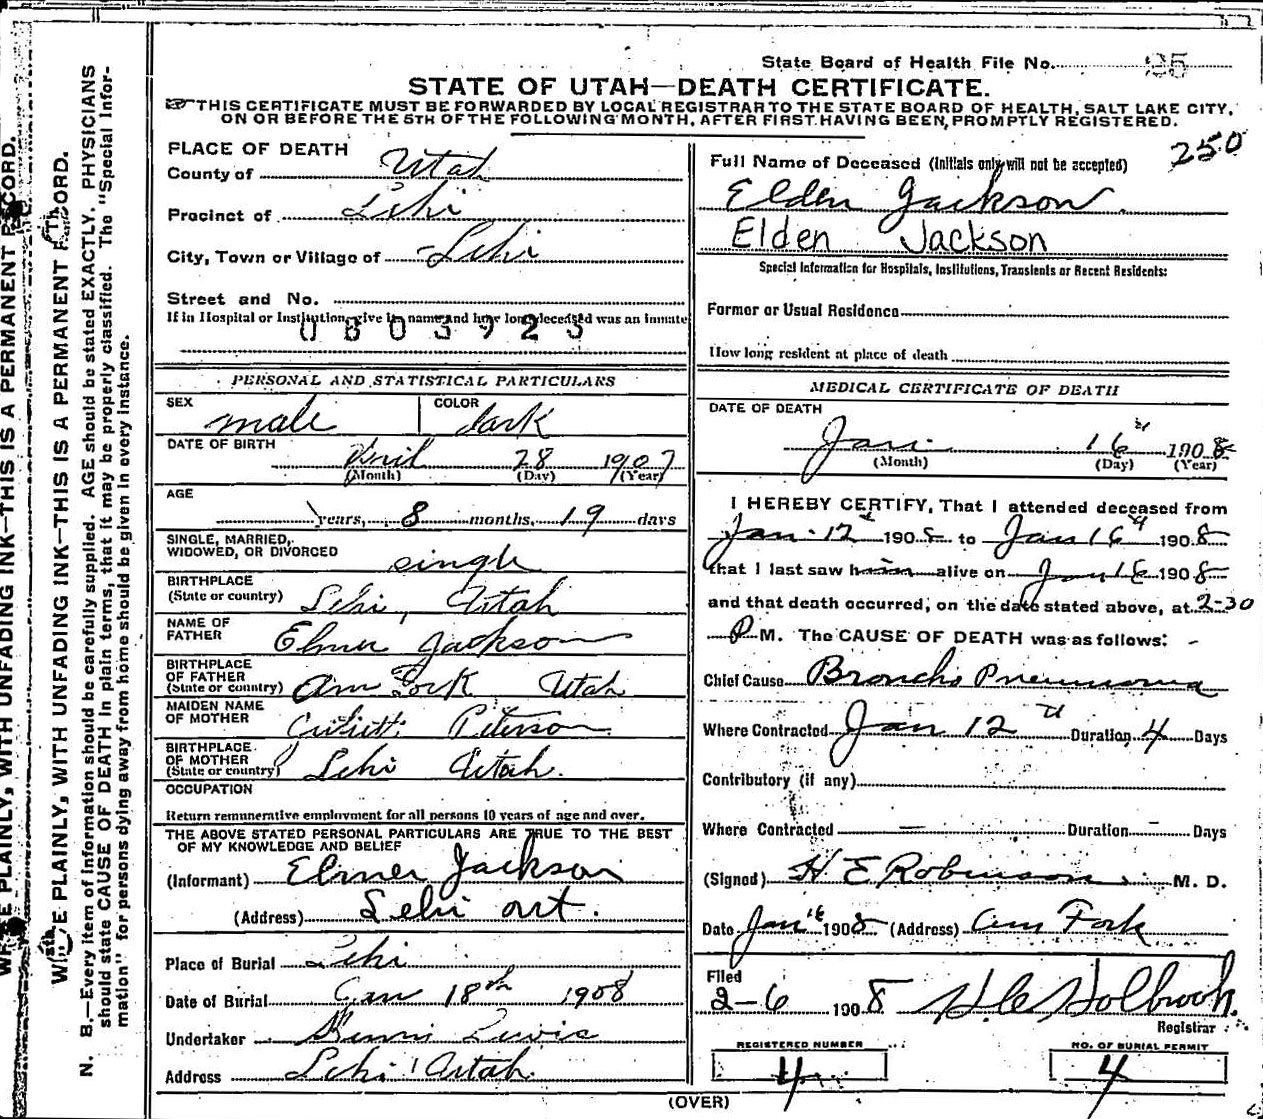 State Board of Health File No. 95
STATE OF UTAH—DEATH CERTIFICATE.
THIS CERTIFICATE MUST BE FORWARDED BY LOCAL REGISTRAR TO THE STATE BOARD OF HEALTH, SALT LAKE CITY,
ON OR BEFORE THE 5TH OF THE FOLLOWING MONTH, AFTER FIRST HAVING BEEN PROMPTLY REGISTERED.
250
PLACE OF DEATH
County of Utah
Precinct of Lehi
City, Town or Village of Lehi
Street and No.
If in Hospital or Institution, give its name and how long deceased was an inmate
PERSONAL AND STATISTICAL PARTICULARS
SEX male COLOR dark
DATE OF BIRTH April 28 1907
(Month) (Day) (Year)
AGE
years, 8 months, 19 days
SINGLE, MARRIED,
WIDOWED, OR DIVORCED single
BIRTHPLACE
(State or country) Lehi, Utah
NAME OF
FATHER Elmer Jackson
BIRTHPLACE
OF FATHER
(State or country) Am Fork Utah
MAIDEN NAME
OF MOTHER Peterson
BIRTHPLACE
OF MOTHER
(State or country) Lehi Utah.
OCCUPATION
Return remunerative employment for all persons 10 years of age and over.
THE ABOVE STATED PERSONAL PARTICULARS ARE TRUE TO THE BEST
OF MY KNOWLEDGE AND BELIEF
(Informant) Elmer Jackson
(Address) Lehi
Place of Burial Lehi
Date of Burial Jan 18th 1908
Undertaker Lewis
Address Lehi Utah.
Full Name of Deceased (Initials only will not be accepted)
Elden Jackson.
Elden Jackson
Special Information for Hospitals, Institutions, Transients or Recent Residents:
Former or Usual Residence
How long resident at place of death
MEDICAL CERTIFICATE OF DEATH
DATE OF DEATH
Jan 16 1908
(Month) (Day) (Year)
I HEREBY CERTIFY, That I attended deceased from
Jan 12 1908 to Jan 16 1908
that I last saw him alive on Jan 16 1908
and that death occurred, on the date stated above, at 2-30
P M. The CAUSE OF DEATH was as follows:
Chief Cause Broncho Pneumonia
Where Contracted Jan 12 Duration 4 Days
Contributory (if any)
Where Contracted — Duration — Days
(Signed) H E Robinson. M. D.
Date Jan 16 1908 (Address) Am Fork
Filed
2-6 1908 Holbrook.
Registrar
REGISTERED NUMBER
4
NO. OF BURIAL PERMIT
4
(OVER)
WRITE PLAINLY, WITH UNFADING INK—THIS IS A PERMANENT RECORD.
WRITE PLAINLY, WITH UNFADING INK—THIS IS A PERMANENT RECORD.
N. B.—Every item of information should be carefully supplied. AGE should be stated EXACTLY. PHYSICIANS
should state CAUSE OF DEATH in plain terms, that it may be properly classified. The "Special Infor-
mation" for persons dying away from home should be given in every instance.